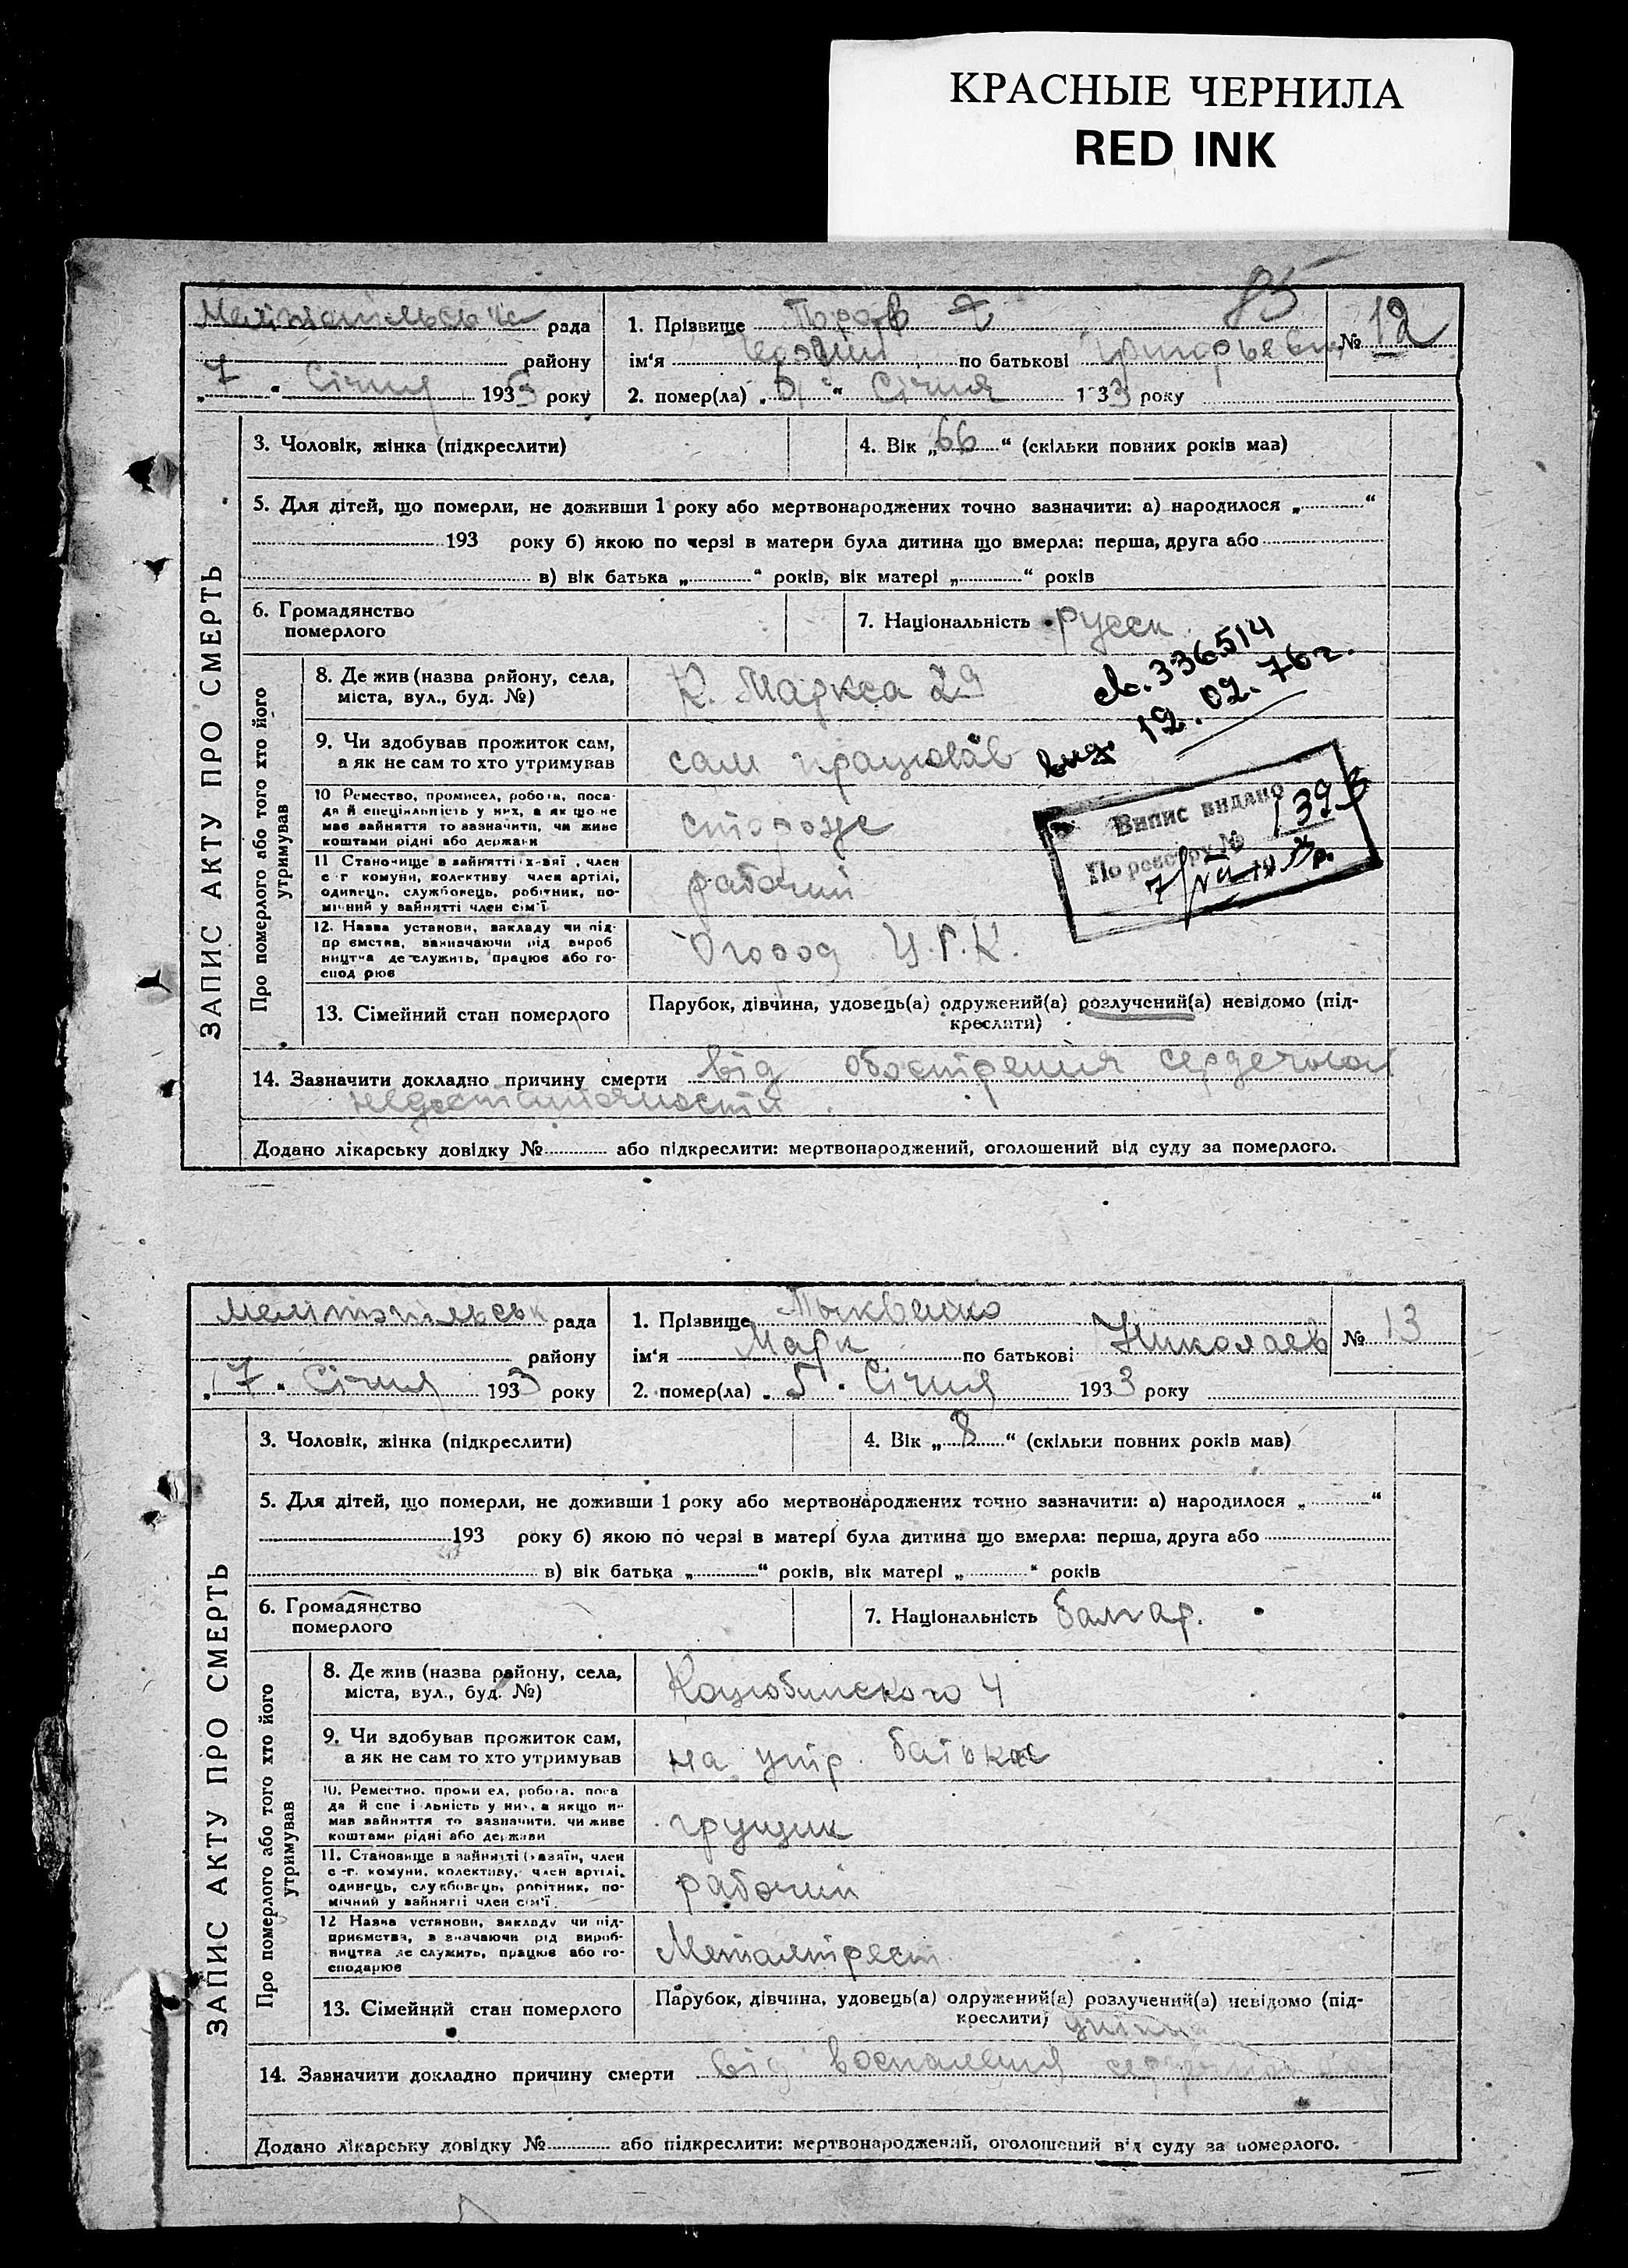 КРАСНЫЕ ЧЕРНИЛА
RED INK
85
Мелітопільська рада
району
„ 7 “ Січня 1933 року
1. Прізвище
ім'я по батькові Григорьевич
№ 12
2. помер(ла) „ “ Січня 1933 року
ЗАПИС АКТУ ПРО СМЕРТЬ
3. Чоловік, жінка (підкреслити)
4. Вік „ 66 “ (скільки повних років мав)
5. Для дітей, що померли, не доживши 1 року або мертвонароджених точно зазначити: а) народилося „ “
193 року б) якою по черзі в матери була дитина що вмерла: перша, друга або
в) вік батька „ “ років, вік матері „ “ років
6. Громадянство
померлого
7. Національність русск
Про померлого або того хто його
утримував
8. Де жив (назва району, села,
міста, вул., буд. №)
К. Маркса 29
336514
вид. 12.02.76г.
9. Чи здобував прожиток сам,
а як не сам то хто утримував
сам працював
10 Ремество, промисел, робота, поса-
да й спеціяльність у них, а як що не
має зайняття то зазначити, чи живе
коштами рідні або держави
сторож
Випис видано
По реєстру №
11 Становище в зайнятті член
с г комуни, колективу член артілі,
одинець, службовець, робітник, по-
мічний у зайнятті член сім'ї
рабочий
12. Назва установи, закладу чи під-
пр ємства, зазначаючи рід вироб
ництва де служить, працює або го-
спод рює
Огород Ц.Р.К.
13. Сімейний стан померлого
Парубок, дівчина, удовець(а) одружений(а) розлучений(а) невідомо (під-
креслити)
14. Зазначити докладно причину смерти від обострения сердечной
недостаточности
Додано лікарську довідку № або підкреслити: мертвонароджений, оголошений від суду за померлого.
Мелітопільськ рада
району
„ 7 “ Січня 1933 року
1. Прізвище Тыквенко
ім'я Марк по батькові Николаев
№ 13
2. помер(ла) „ 5 “ Січня 1933 року
ЗАПИС АКТУ ПРО СМЕРТЬ
3. Чоловік, жінка (підкреслити)
4. Вік „ 8 “ (скільки повних років мав)
5. Для дітей, що померли, не доживши 1 року або мертвонароджених точно зазначити: а) народилося „ “
193 року б) якою по черзі в матері була дитина що вмерла: перша, друга або
в) вік батька „ “ років, вік матері „ “ років
6. Громадянство
померлого
7. Національність болгар.
Про померлого або того хто його
утримував
8. Де жив (назва району, села,
міста, вул., буд. №)
Коцюбинского 4
9. Чи здобував прожиток сам,
а як не сам то хто утримував
на утр. батька
10. Ремество, проми ел, робота, поса
да й спе і льність у них, а якщо н-
має зайняття то зазначити, чи живе
коштами рідні або держави
грущик
11. Становище в зайнятті (хазяїн, член
с-г. комуни, колективу, член артілі,
одинець, службовець, робітник, по-
мічний у зайнятті член сім'ї
рабочий
12 Назва установи, закладу чи під-
приємства, з значаючи рід вироб-
ництва де служить, працює або го-
сподарює
Металтрест
13. Сімейний стан померлого
Парубок, дівчина, удовець(а) одружений(а) розлучений(а) невідомо (під-
креслити)
14. Зазначити докладно причину смерти від воспаления
Додано лікарську довідку № або підкреслити: мертвонароджений, оголошений від суду за померлого.